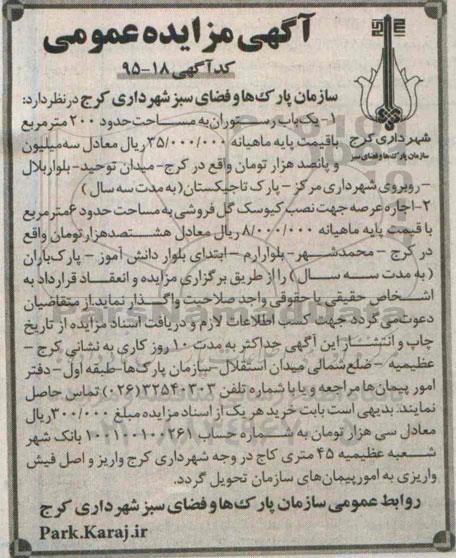 آگهی مزایده عمومی
کد آگهی ۱۸-۹۵
شهرداری کرج
سازمان پارک‌ها و فضای سبز
سازمان پارک‌ها و فضای سبز شهرداری کرج در نظر دارد:
۱- یک باب رستوران به مساحت حدود ۲۰۰ مترمربع
با قیمت پایه ماهیانه ۳۵/۰۰۰/۰۰۰ ریال معادل سه میلیون
و پانصد هزار تومان واقع در کرج- میدان توحید- بلوار بلال
- روبروی شهرداری مرکز - پارک تاجیکستان (به مدت سه سال)
۲- اجاره عرصه جهت نصب کیوسک گل فروشی به مساحت حدود ۶ مترمربع
با قیمت پایه ماهیانه ۸/۰۰۰/۰۰۰ ریال معادل هشتصد هزار تومان واقع
در کرج - محمدشهر- بلوار ارم - ابتدای بلوار دانش آموز - پارک باران
(به مدت سه سال) را از طریق برگزاری مزایده و انعقاد قرارداد به
اشخاص حقیقی یا حقوقی واجد صلاحیت واگذار نماید. از متقاضیان
دعوت می گردد جهت کسب اطلاعات لازم و دریافت اسناد مزایده از تاریخ
چاپ و انتشار این آگهی حداکثر به مدت ۱۰ روز کاری به نشانی کرج -
عظیمیه - ضلع شمالی میدان استقلال - سازمان پارک‌ها- طبقه اول - دفتر
امور پیمان‌ها مراجعه و یا با شماره تلفن ۳۲۵۴۰۳۰۳(۰۲۶) تماس حاصل
نمایند. بدیهی است بابت خرید هر یک از اسناد مزایده مبلغ ۳۰۰/۰۰۰ ریال
معادل سی هزار تومان به شماره حساب ۱۰۰۱۰۰۱۰۰۲۶۱ بانک شهر
شعبه عظیمیه ۴۵ متری کاج در وجه شهرداری کرج واریز و اصل فیش
واریزی به امور پیمان‌های سازمان تحویل گردد.
روابط عمومی سازمان پارک‌ها و فضای سبز شهرداری کرج
Park.Karaj.ir
ParsNamadData